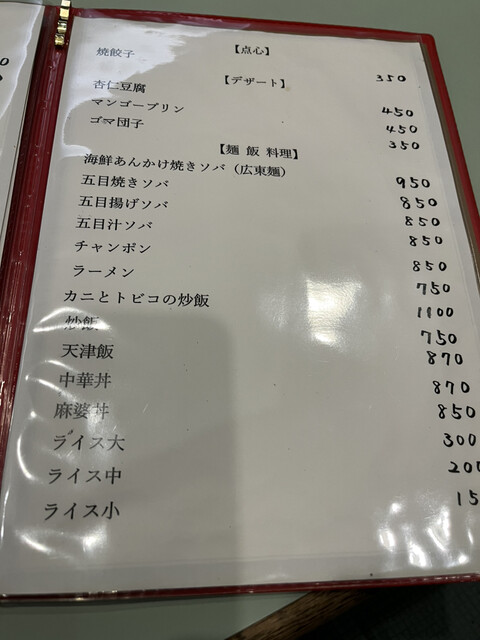 【点心】
焼餃子 350
【デザート】
杏仁豆腐 450
マンゴープリン 450
ゴマ団子 350
【麺 飯 料理】
海鮮あんかけ焼きソバ（広東麺） 950
五目焼きソバ 850
五目揚げソバ 850
五目汁ソバ 850
チャンポン 850
ラーメン 750
カニとトビコの炒飯 1100
炒飯 750
天津飯 870
中華丼 870
麻婆丼 850
ライス大 300
ライス中 200
ライス小 15